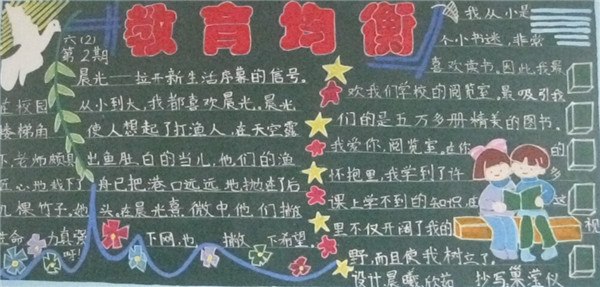 教育均衡
六(2)
第2期
晨光——拉开新生活序幕的信号。
校园 从小到大,我都喜欢晨光。晨光
楼梯角 使人想起了打渔人,在天空露
老师 出鱼肚白的当儿,他们的渔
心地 我下 舟已把港口远远地抛在了后
几棵竹子,他 头。在晨光熹微中,他们撒
生命 力真强 下网,也 撒 下希望。
啊!
我从小是
个小书迷,非常
喜欢读书。因此,我最
欢我们学校的阅览室。最吸引我
们的是五万多册精美的图书。
我爱你,阅览室。在你 的
怀抱里,我学到了许 多
课上学不到的知识,在 这
里不仅开阔了我的 视
野,而且使我树立了。
设计 晨曦 欣茹 抄写 巢莹仪